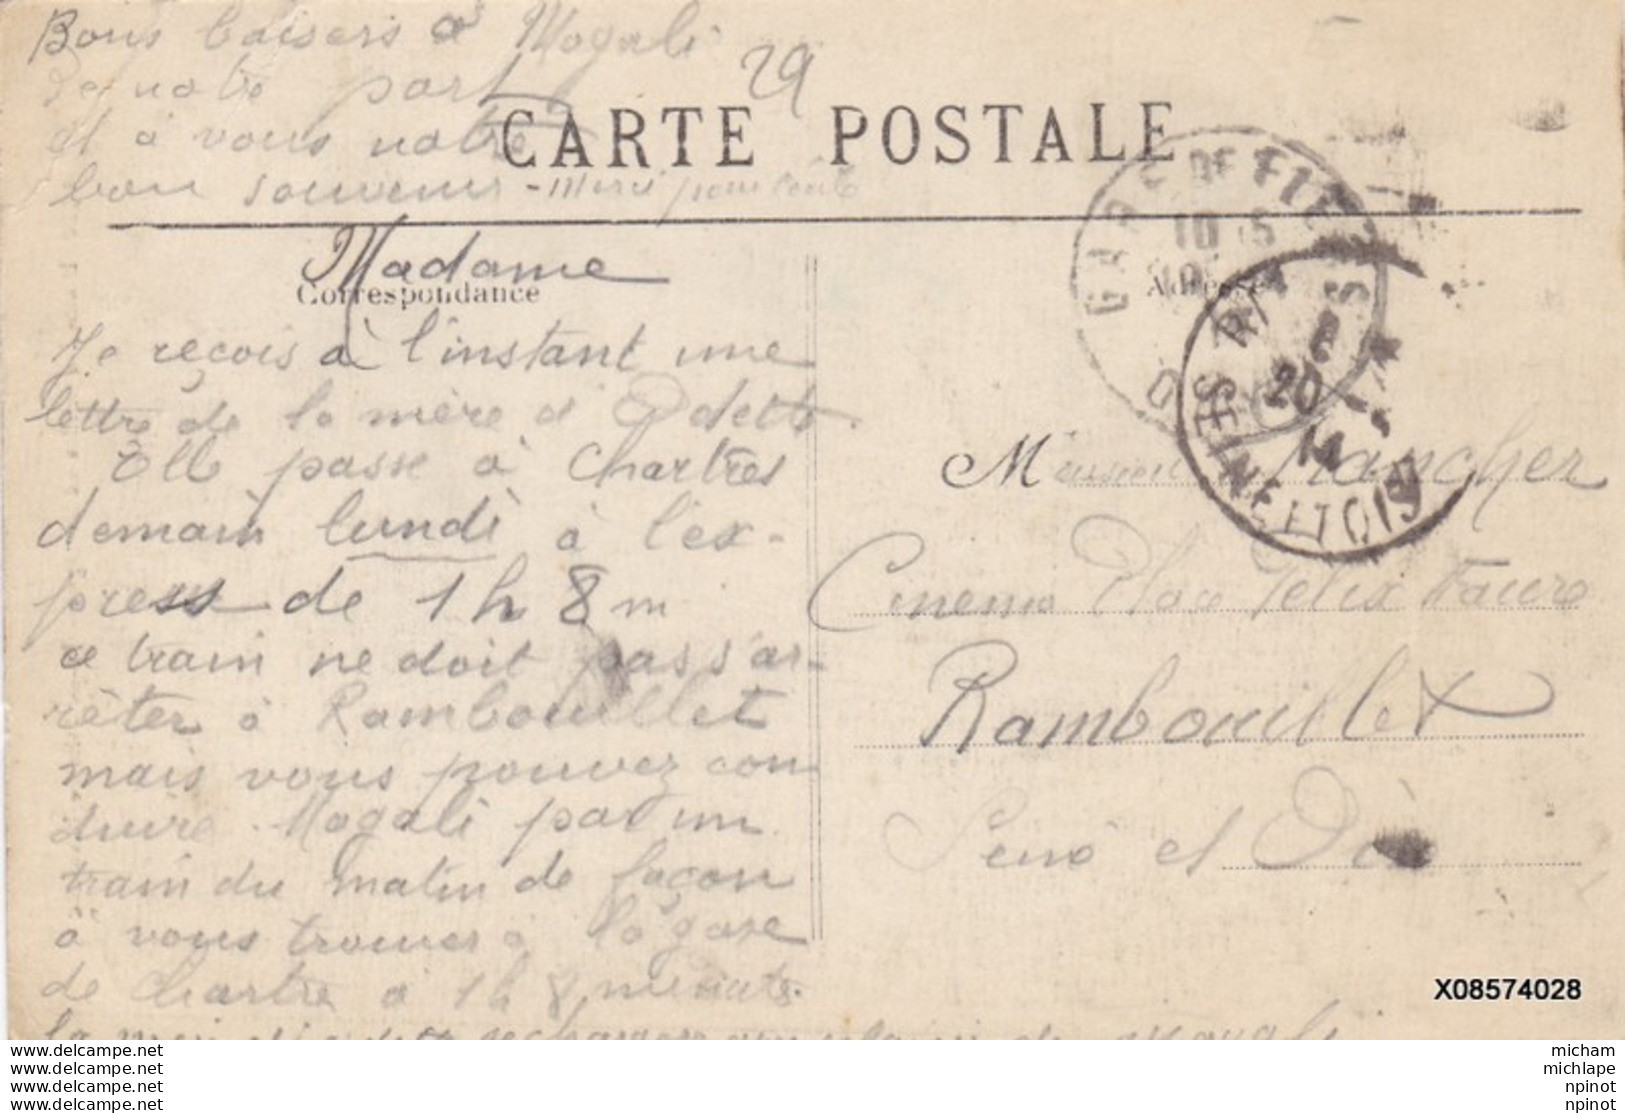 Bons baisers à Magali
de notre part
et à vous notre
bon souvenir - Merci pour toute
29
CARTE POSTALE
Madame
Correspondance
Je reçois à l'instant une
lettre de la mère d'Odette.
Elle passe à Chartres
demain lundi à l'ex-
press de 1 h 8 m
ce train ne doit pas s'ar-
rêter à Rambouillet
mais vous pouvez con
duire Magali par un
train du matin de façon
à vous trouver à la gare
de Chartres à 1 h 8 minutes.
la mère d'Odette se chargera au plaisir de Magali
Adresse
GARE DE
10 5
RAMBOUILLET
20 - 4
14
SEINE-ET-OISE
Monsieur Mancher
Cinema Place Felix Faure
Rambouillet
Seine et Oise
X08574028
www.delcampe.net
www.delcampe.net
www.delcampe.net
www.delcampe.net
micham
michlape
npinot
npinot